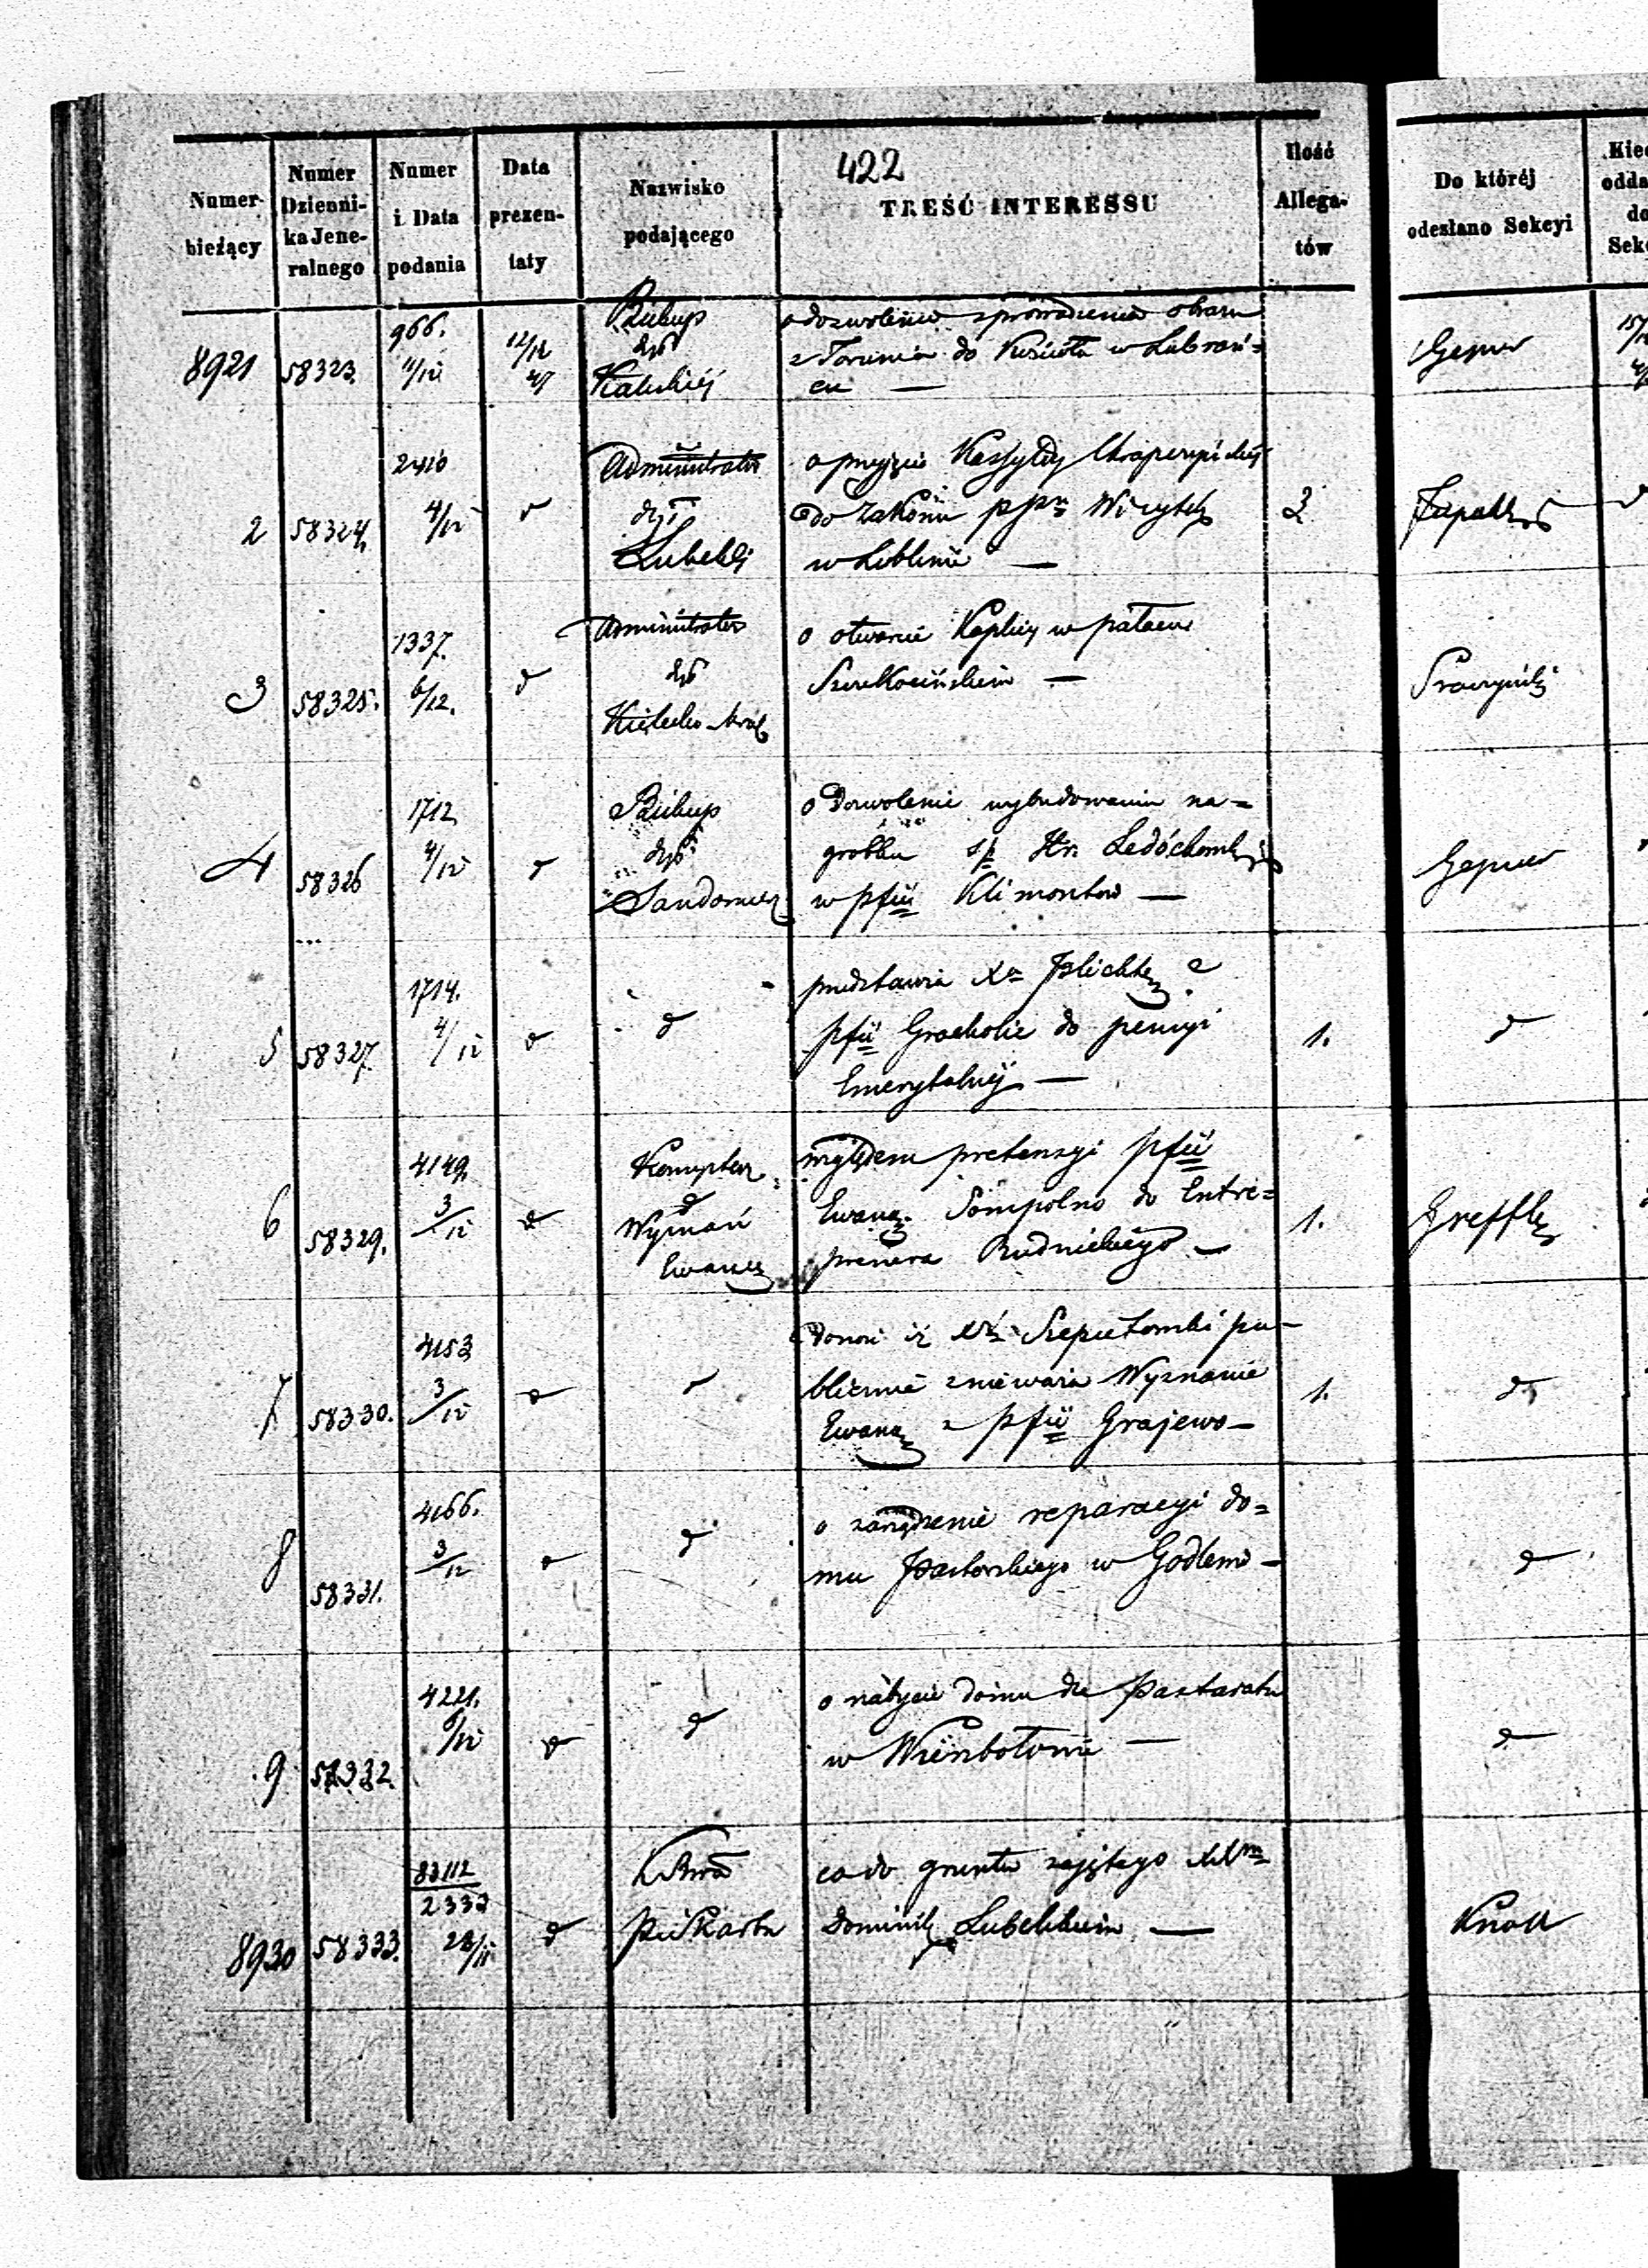 422
Numer bieżący
Numer Dzienni- ka Jene- ralnego
Numer i Data podania
Data prezen- taty
Nazwisko podającego
TREŚĆ INTERESSU
Ilość Allega- tów
Do któréj odesłano Sekcyi
8921 58323. 966. 4/12 12/12 47
Biskup
Kaliskiéj
o dozwolenie sprowadzenia obrazu
z Torunia do Kościoła w Lubrań-
cu —
2 58324. 2410 4/12
Administrator
Lubelskiej
o przyjęcie Kassyldy
do Zakonu ppn Wizytek
w Lublinie —
2
3 58325. 1337. 6/12.
Administrator
Kielecko-Krak
o otwarcie Kaplicy w pałacu
Szczekocińskim —
4 58326 1712 4/12
Biskup
Sandomier
o Dozwolenie wybudowania na=
grobku sp Hr. Ledóchowskiego
w pfii Klimontow —
5 58327. 1714. 4/12
przedstawia Xa Plichtę z
pfii Grocholic do pensyi
Emerytalnéj —
1.
6 58329. 4149. 3/12
Konsystorz
Wyznań
Ewang
względem pretensyi pfii
Ewang. Sompolno do Entre=
prenera Rudnickiego —
1.
Greffler
7 58330. 4153 3/12
Donosi iż Xdz Szepietowski pu-
blicznie znieważa Wyznanie
Ewang z pfii Grajewo —
1.
8 58331. 4166. 3/12
o zarządzenie reparacyi do=
mu Pastorskiego w Godlewie —
9 58332. 4221. 6/12
o nabycie domu dla Pastoratu
w Wierzbołowie —
8930 58333. 83112 2332 28/11
co do gruntu zajętego XXm
Dominik Lubelskim —
Knoll